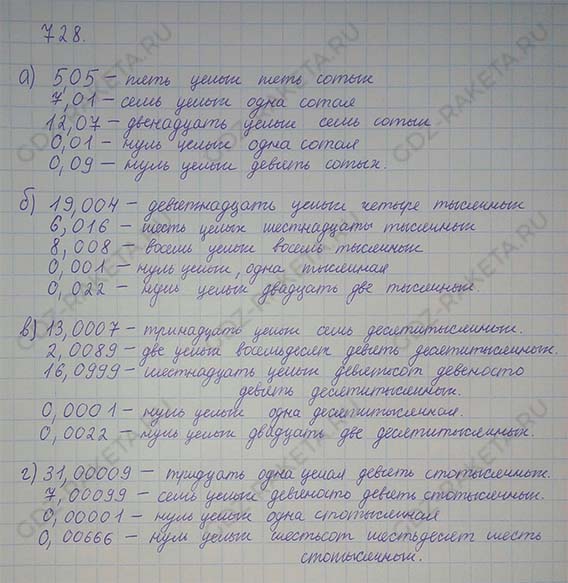 728.
а) 5,05 – пять целых пять сотых
7,01 – семь целых одна сотая
12,07 – двенадцать целых семь сотых
0,01 – нуль целых одна сотая
0,09 – нуль целых девять сотых.
б) 19,004 – девятнадцать целых четыре тысячных
6,016 – шесть целых шестнадцать тысячных
8,008 – восемь целых восемь тысячных
0,001 – нуль целых, одна тысячная
0,022 – нуль целых двадцать две тысячных.
в) 13,0007 – тринадцать целых семь десятитысячных.
2,0089 – две целых восемьдесят девять десятитысячных.
16,0999 – шестнадцать целых девятьсот девяносто
девять десятитысячных.
0,0001 – нуль целых одна десятитысячная.
0,0022 – нуль целых двадцать две десятитысячных.
г) 31,00009 – тридцать одна целая девять стотысячных.
7,00099 – семь целых девяносто девять стотысячных.
0,00001 – нуль целых одна стотысячная
0,00666 – нуль целых шестьсот шестьдесят шесть
стотысячных.
GDZ-RAKETA.RU